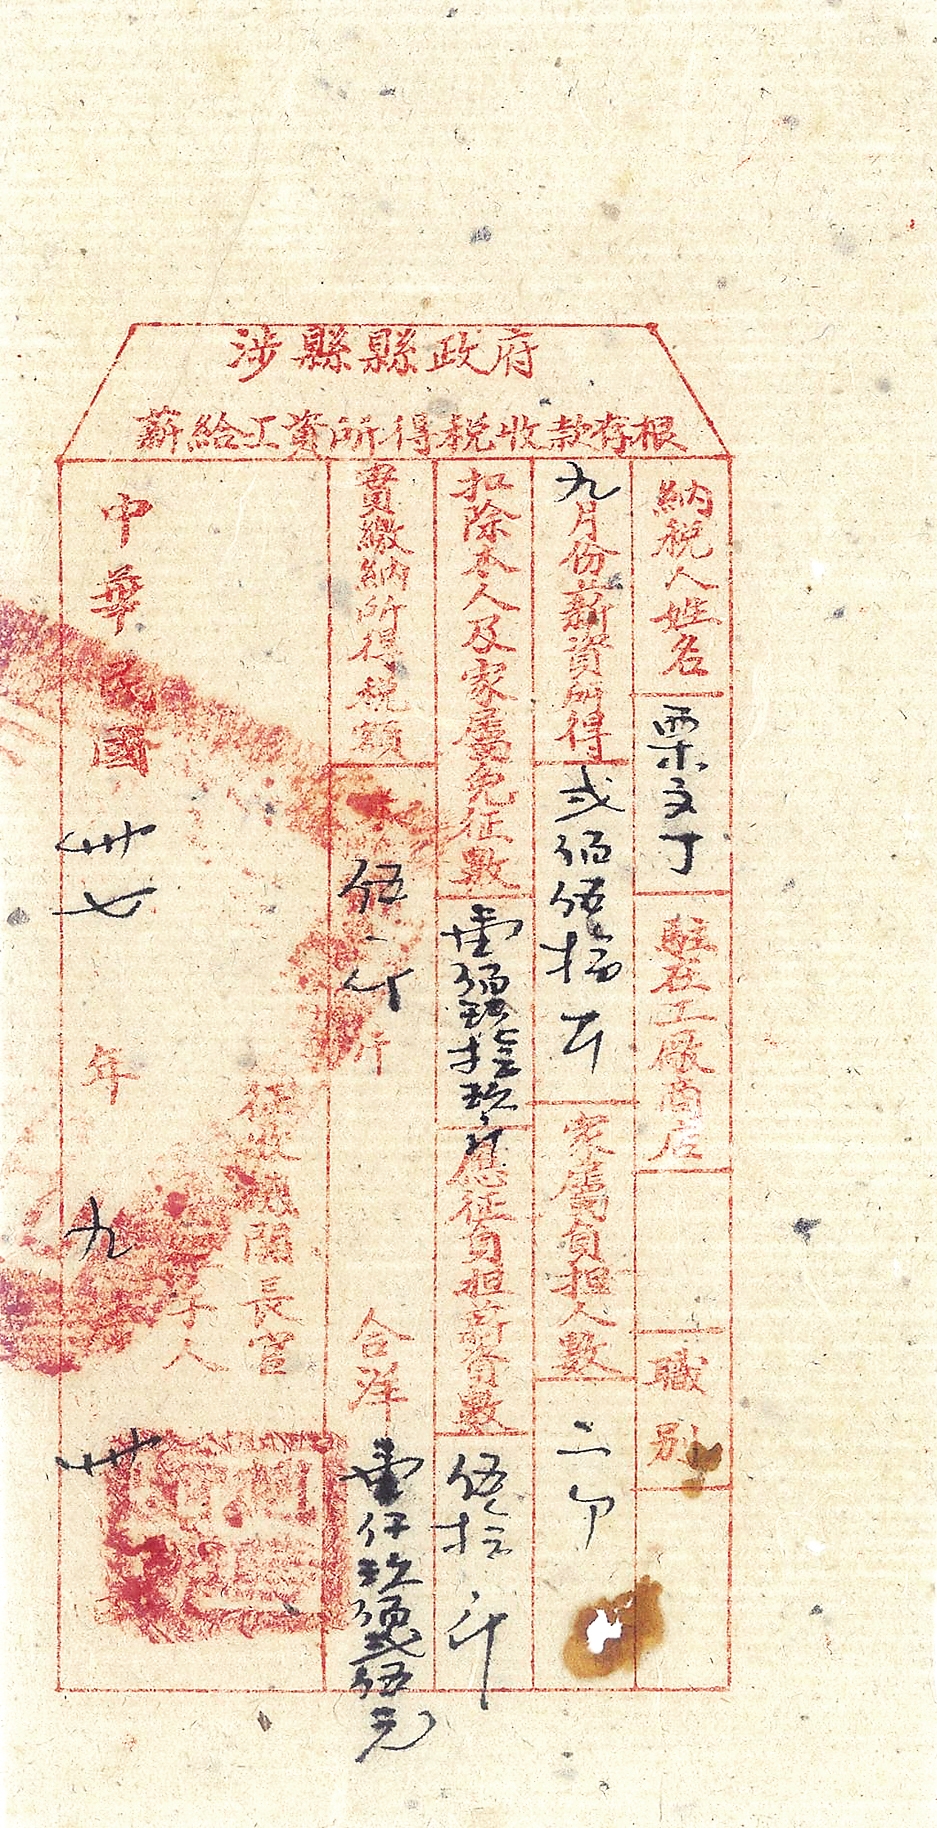 涉縣縣政府
薪給工資所得税收款存根
納税人姓名 栗文丁 駐在工廠商店 職別
九月份薪資所得 弍佰伍拾斤 家属負担人數 二个
扣除本人及家属免征數 壹佰玖拾玖斤 應征負担薪資數 伍拾斤
實繳納所得税額 米 伍斤 斤 合洋 壹仟玖佰弍伍元
征收機關長官
人
中華民國 卅七 年 九 月 卅